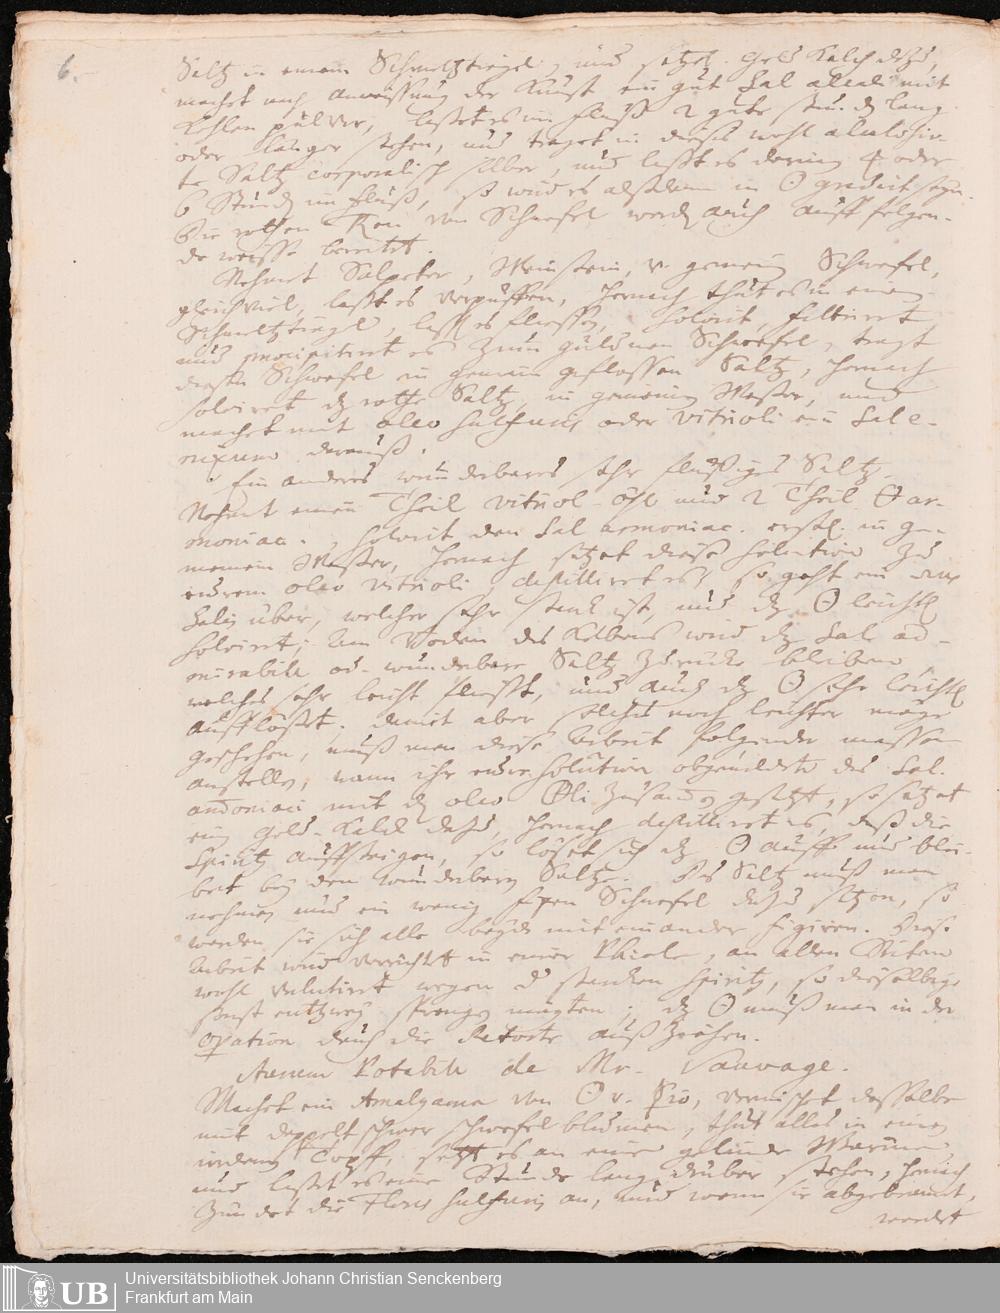 6.
Saltz in einem Schmeltztiegel, und setzet Gold Kalch dazu,
machet nach anweissung der Kunst ein gut Sal alcali mit
Kohlen pulver, laßet es im fluß 2 gute stund lang
oder länger stehen, und traget in dieses wohl
te Saltz corporalisch silber, und laßt es darinn 4 oder
6 Stund im fluß, so wird es alsdann in ☉ gradirt seyn.
Die rothen von Schwefel werd auch auff folgen-
de weisse bereitet.
Nehmet Salpeter, Weinstein, v. gemein Schwefel,
gleich viel, laßt es verpuffen, hernach thut es in einen
Schmeltztiegel, laßt es fliessen, solvirt, filtrirt
und praecipitirt es zum güldnen Schwefel, tragt
diesen Schwefel in gemein geflossen Saltz, hernach
solviret dz rothe Saltz in gemeinen Wasser, und
machet mit oleo sulphuris oder vitrioli ein Sal e-
nixum darauß.
Ein anderes wunderbares sehr flüßiges Saltz
Nehmet einen Theil vitriol öhl und 2 Theil ar-
moniac., solvirt den Sal armoniac. erstl. in ge-
meinem Wasser, hernach setzet diese solution zu
eurem oleo vitrioli, destilliret es, so geht ein
Salis über, welcher sehr starck ist, und dz ☉ leichtl.
solvirt; am Boden des Kolbens wird dz Sal ad-
mirabile od. wunderbare Saltz zurücke bleiben
welches sehr leicht fliesst, und auch dz ☉ sehr leichtl.
aufflößt, damit aber solches noch leichter möge
geschehen, muß man diese Arbeit folgender massen
anstellen, wann ihr eure solution obgemeldte des Sal.
armoniaci mit dz oleo zusamen gesetzt, so setzet
ein Gold-Kalck dazu, hernach destilliret es, daß die
Spirit. auffsteigen, so löset sich dz ☉ auff und blei-
bet bey den wunderbaren Saltz. Dis Saltz muß man
nehmen und ein wenig fixen Schwefel dazu setzen, so
werden sie sich alle beyde mit einander figiren. Diese
Arbeit wird verrichtet in einer Phiole, an allen Seiten
wohl verlutirt wegen d starcken Spirit., so dieselbige
sonst entzwey sprengen mögten; dz ☉ muß man in der
opration durch die Retorte auß ziehen.
Aurum Potabile de Mr. Sauvage.
Machet ein Amalgama von ☉ v. ☿rio, vermischet dasselbe
mit doppelt schwer schwefel blumen, thut alles in einen
irdenen Topff, setzt es an eine gelinde Wärme
und laßt es eine Stunde lang drüber stehen, hernach
zündet die Flores sulphuris an, und wenn sie abgebrannt,
werdet
Universitätsbibliothek Johann Christian Senckenberg
Frankfurt am Main
UB